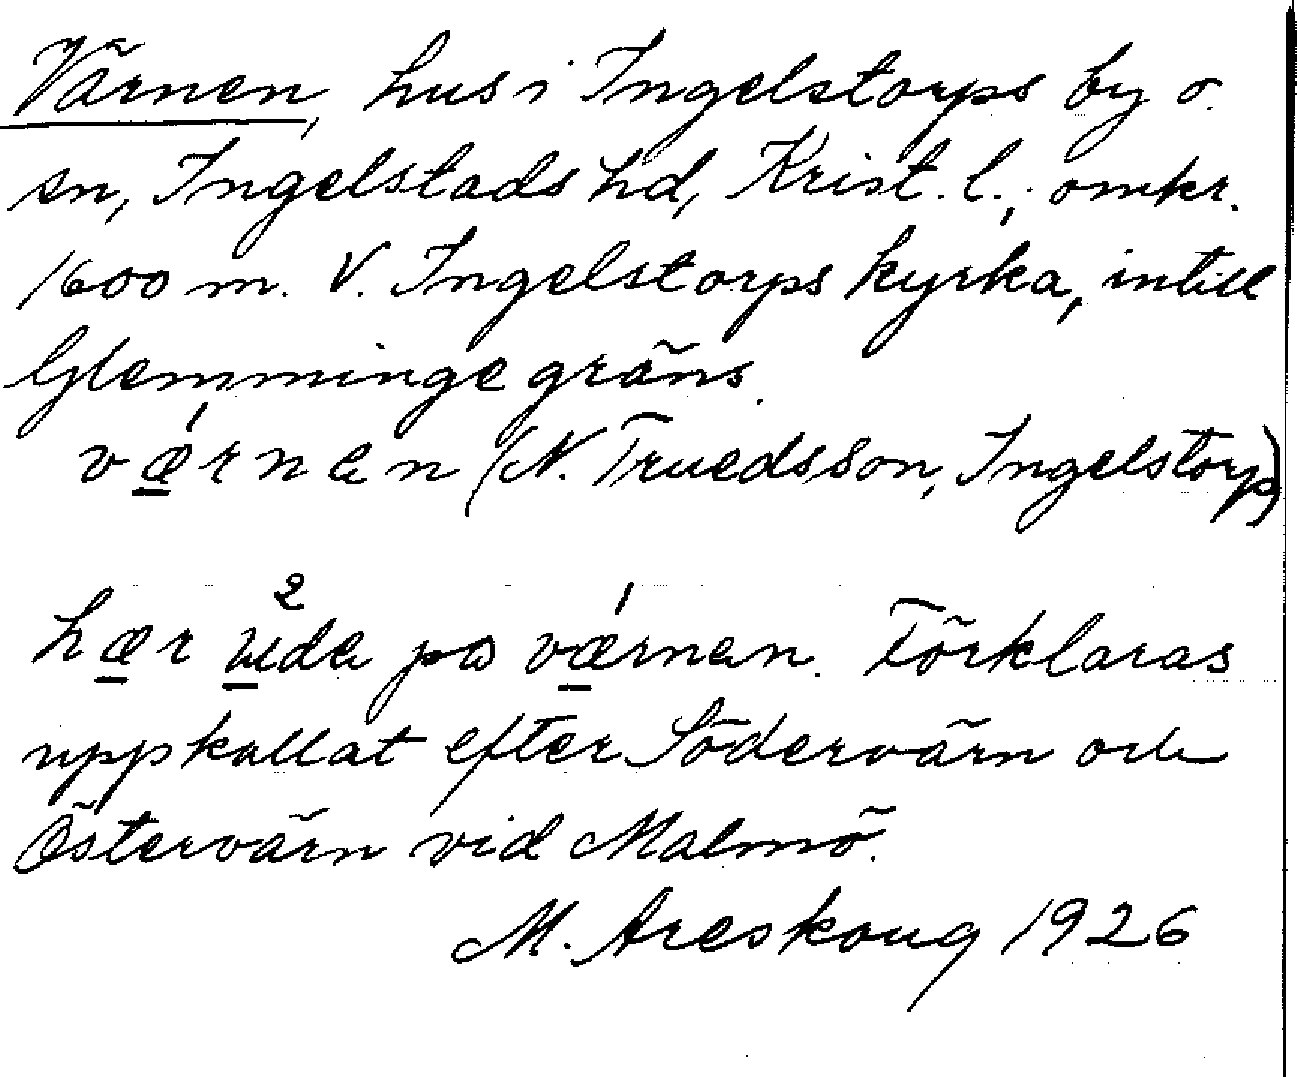 Värnen, hus i Ingelstorps by o.
sn, Ingelstads hd, Krist. l., omkr.
1600 m. V. Ingelstorps kyrka, intill
Glemminge gräns.
værnen (N. Truedsson, Ingelstorp)
hær uda pa værnen. Förklaras
uppkallat efter Södervärn och
Östervärn vid Malmö.
M. Areskoug 1926